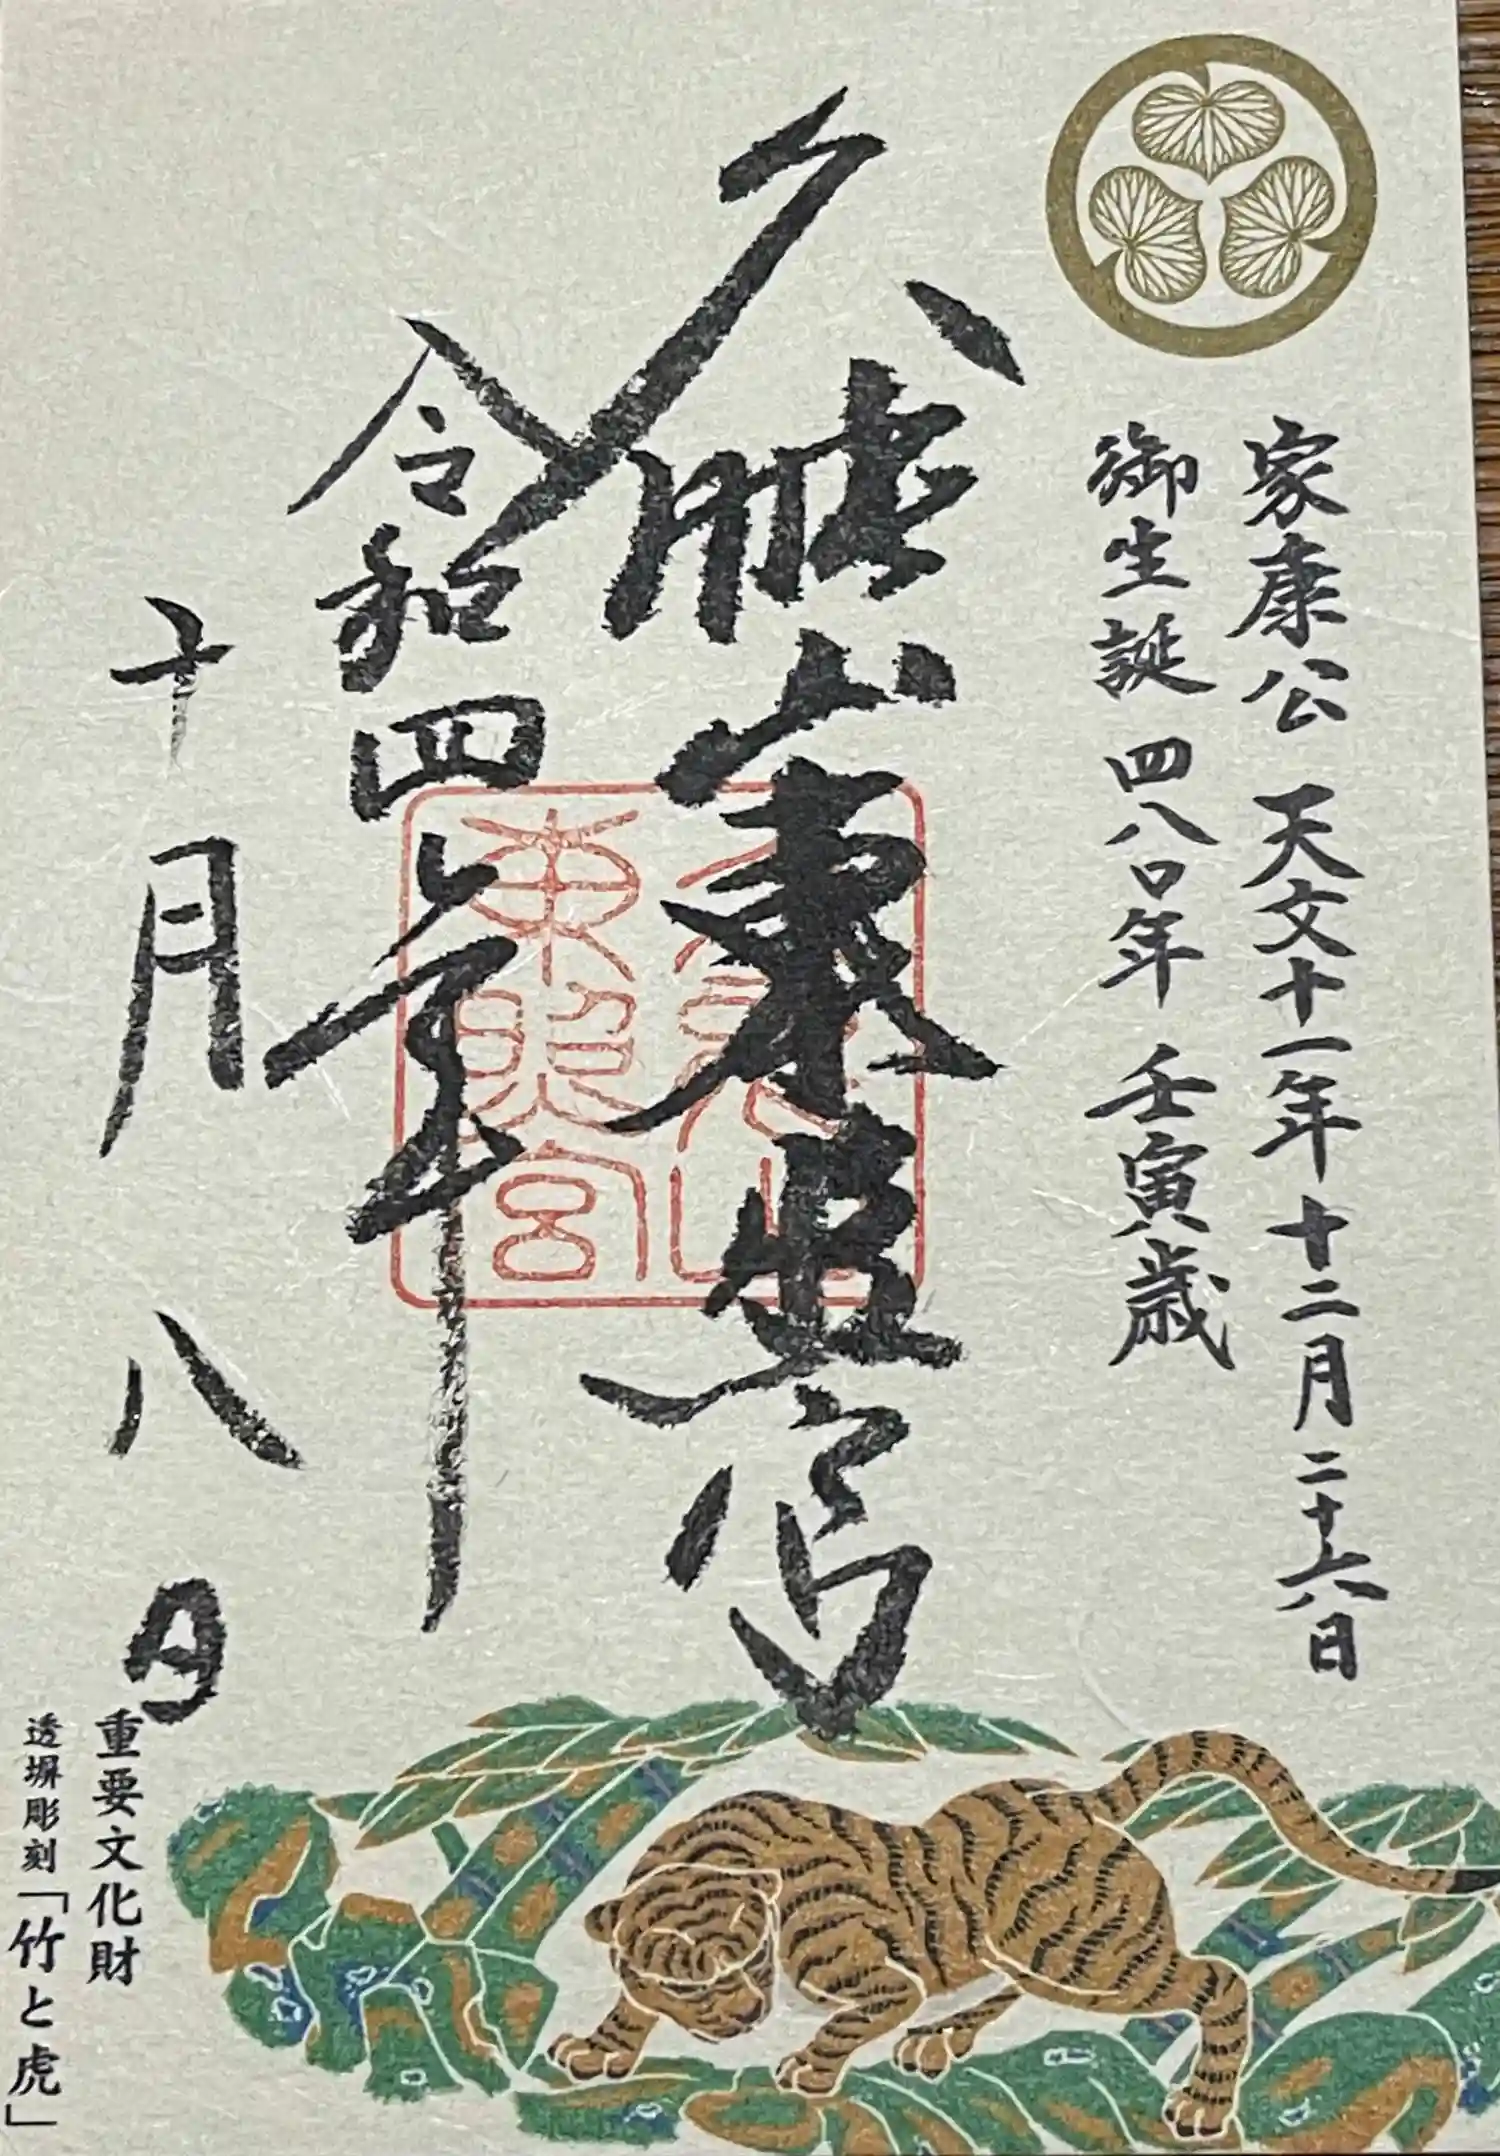 家康公 天文十一年十二月二十六日
御生誕 四八〇年 壬寅歳
久能山東照宮
令和四年
十月八日
久能山
東照宮
重要文化財
透塀彫刻「竹と虎」